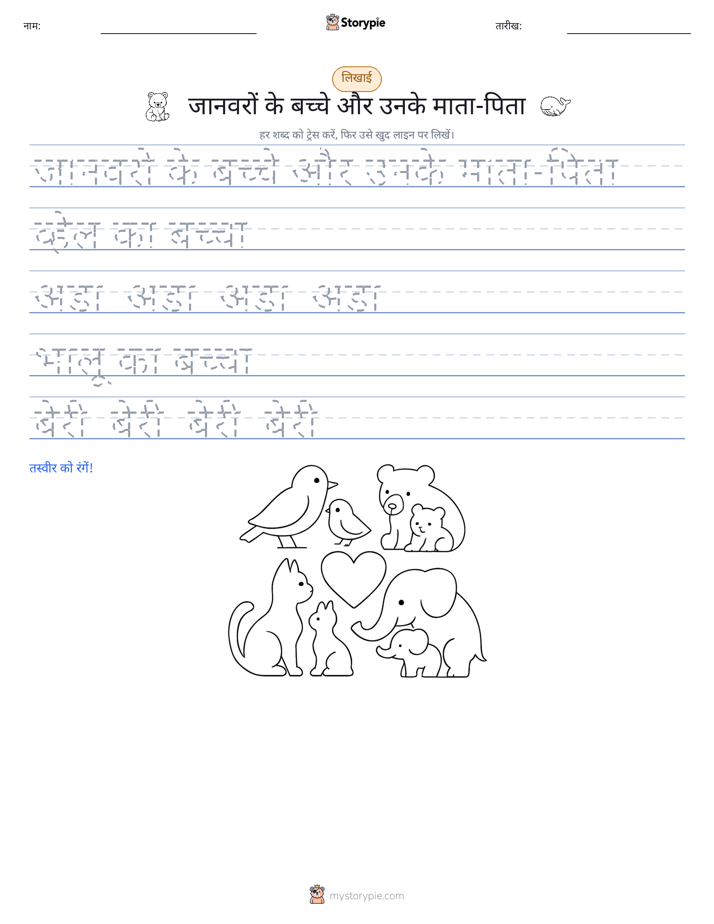 नाम:
Storypie
तारीख:
लिखाई
जानवरों के बच्चे और उनके माता-पिता
हर शब्द को ट्रेस करें, फिर उसे खुद लाइन पर लिखें।
जानवरों के बच्चे और उनके माता-पिता
व्हेल का बच्चा
अंडा अंडा अंडा अंडा
भालू का बच्चा
बेरी बेरी बेरी बेरी
तस्वीर को रंगें!
mystorypie.com